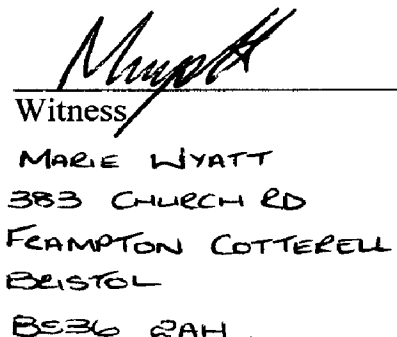 Witness
MARIE WYATT
383 CHURCH RD
FRAMPTON COTTERELL
BRISTOL
BS36 2AH